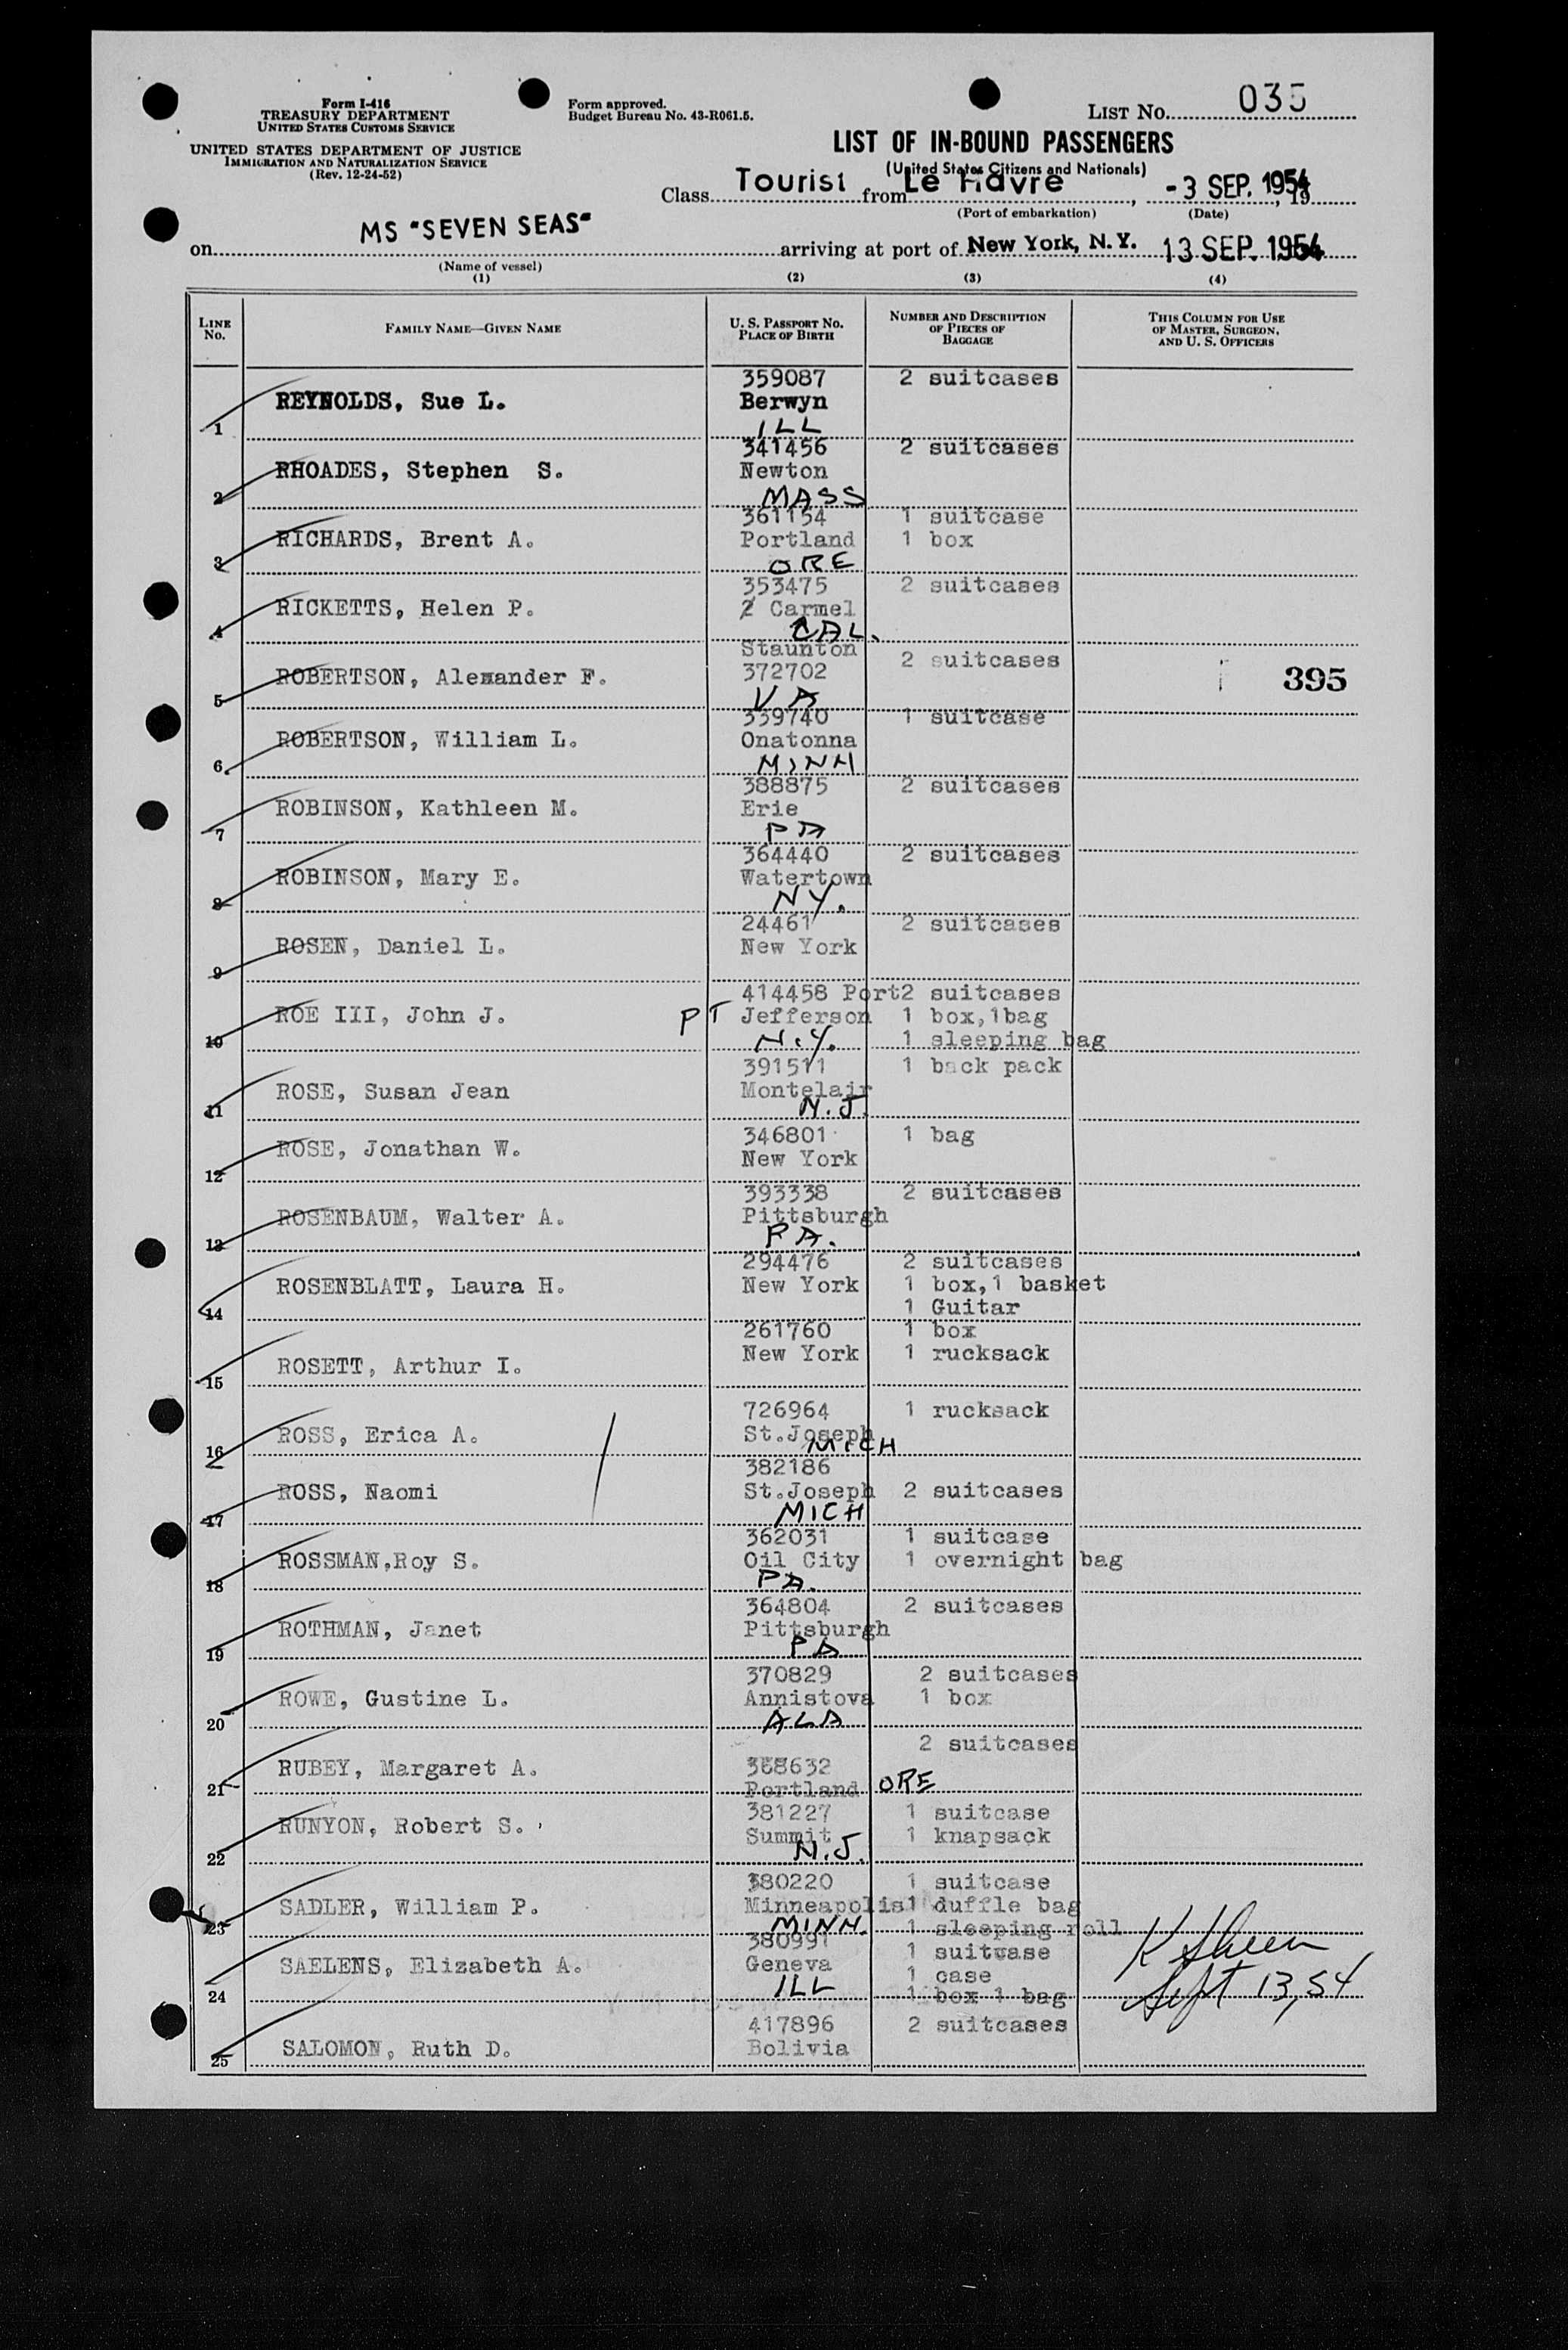 Form I-416
TREASURY DEPARTMENT
UNITED STATES CUSTOMS SERVICE
UNITED STATES DEPARTMENT OF JUSTICE
IMMIGRATION AND NATURALIZATION SERVICE
(Rev. 12-24-52)
Form approved.
Budget Bureau No. 43-R061.5.
LIST No. 035
LIST OF IN-BOUND PASSENGERS
(United States Citizens and Nationals)
Class Tourist from Le Havre, -3 SEP. 1954, 19
(Port of embarkation) (Date)
on MS "SEVEN SEAS" arriving at port of New York, N.Y. 13 SEP. 1954
(Name of vessel)
(1) (2) (3) (4)
LINE No. FAMILY NAME—GIVEN NAME U. S. PASSPORT No. PLACE OF BIRTH NUMBER AND DESCRIPTION OF PIECES OF BAGGAGE THIS COLUMN FOR USE OF MASTER, SURGEON, AND U. S. OFFICERS
359087 2 suitcases
REYNOLDS, Sue L. Berwyn
1 ILL
341456 2 suitcases
RHOADES, Stephen S. Newton
2 MASS
361154 1 suitcase
RICHARDS, Brent A. Portland 1 box
3 ORE
353475 2 suitcases
RICKETTS, Helen P. 2 Carmel
4 CAL.
Staunton 2 suitcases
ROBERTSON, Alexander F. 372702 395
5 VA
339740 1 suitcase
ROBERTSON, William L. Onatonna
6 MINN
388875 2 suitcases
ROBINSON, Kathleen M. Erie
7 PA
364440 2 suitcases
ROBINSON, Mary E. Watertown
8 NY.
24461 2 suitcases
ROSEN, Daniel L. New York
9
414458 Port 2 suitcases
ROE III, John J. PT Jefferson 1 box,1bag
10 N.Y. 1 sleeping bag
391511 1 back pack
ROSE, Susan Jean Montelair
11 N.J.
346801 1 bag
ROSE, Jonathan W. New York
12
393338 2 suitcases
ROSENBAUM, Walter A. Pittsburgh
13 PA.
294476 2 suitcases
ROSENBLATT, Laura H. New York 1 box,1 basket
14 1 Guitar
261760 1 box
ROSETT, Arthur I. New York 1 rucksack
15
726964 1 rucksack
ROSS, Erica A. St.Joseph
16 MICH
382186
ROSS, Naomi St.Joseph 2 suitcases
17 MICH
362031 1 suitcase
ROSSMAN,Roy S. Oil City 1 overnight bag
18 PA.
364804 2 suitcases
ROTHMAN, Janet Pittsburgh
19 PA
370829 2 suitcases
ROWE, Gustine L. Annistova 1 box
20 ALA
2 suitcases
RUBEY, Margaret A. 368632
21 Portland ORE
381227 1 suitcase
RUNYON, Robert S. Summit 1 knapsack
22 N.J.
380220 1 suitcase
SADLER, William P. Minneapolis 1 duffle bag
23 MINN. 1 sleeping roll
380991 1 suitcase
SAELENS, Elizabeth A. Geneva 1 case
24 ILL 1 box 1 bag
K Sheen
Sept 13, 54
417896 2 suitcases
SALOMON, Ruth D. Bolivia
25